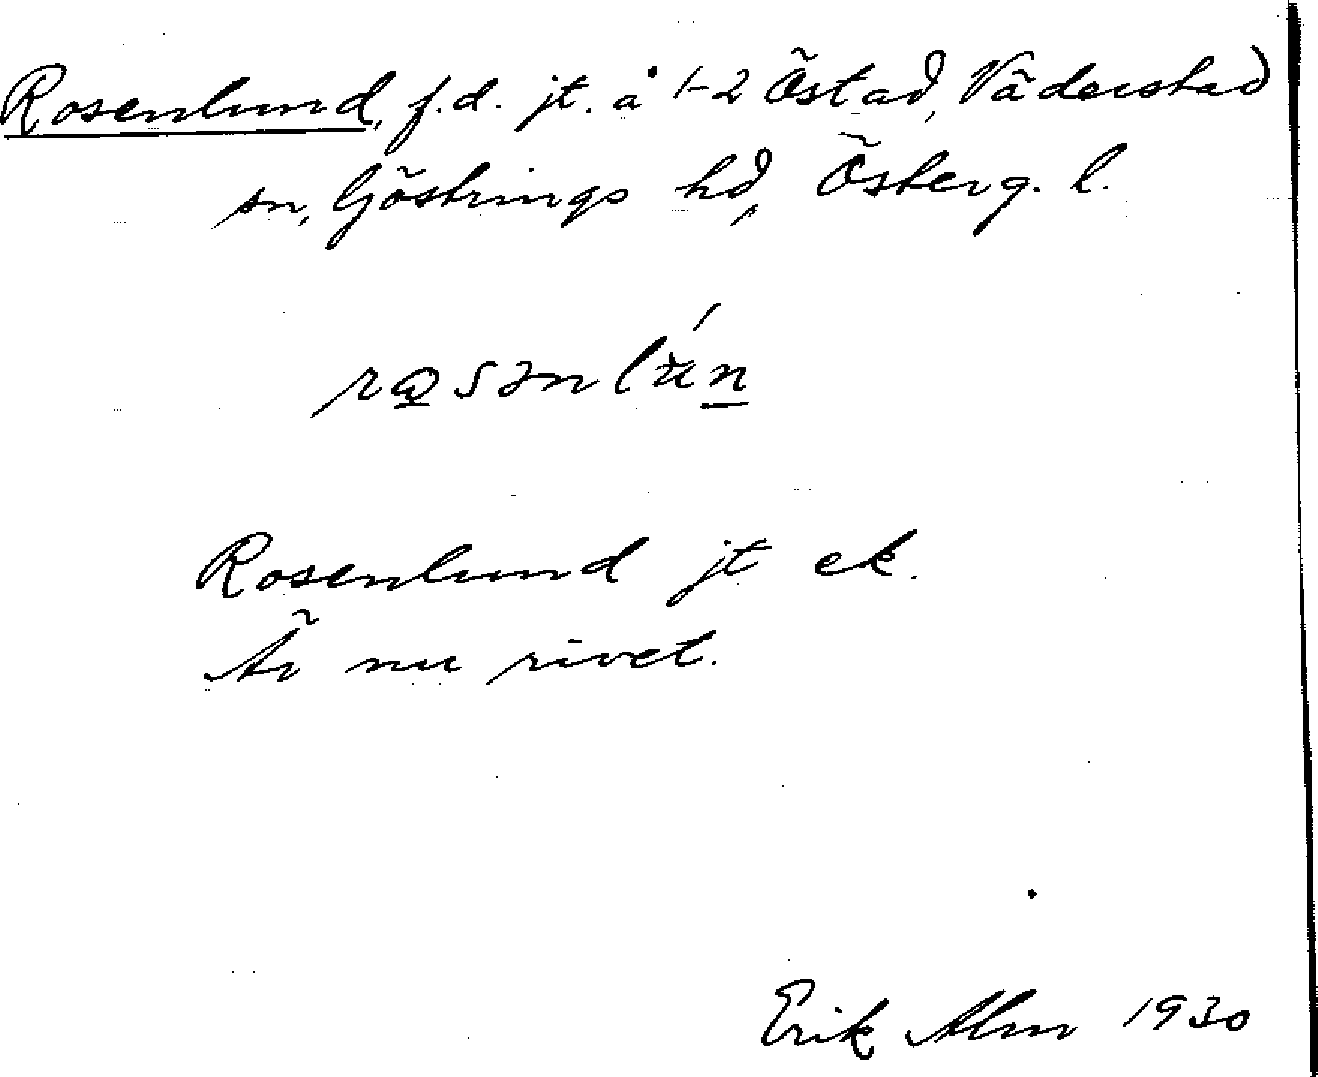 Rosenlund, f.d. jt. å 1-2 Östad, Väderstad
sn, Göstrings hd, Österg. l.
rωsənlu̇́n
Rosenlund jt ek.
Är nu rivet.
Erik Alm 1930